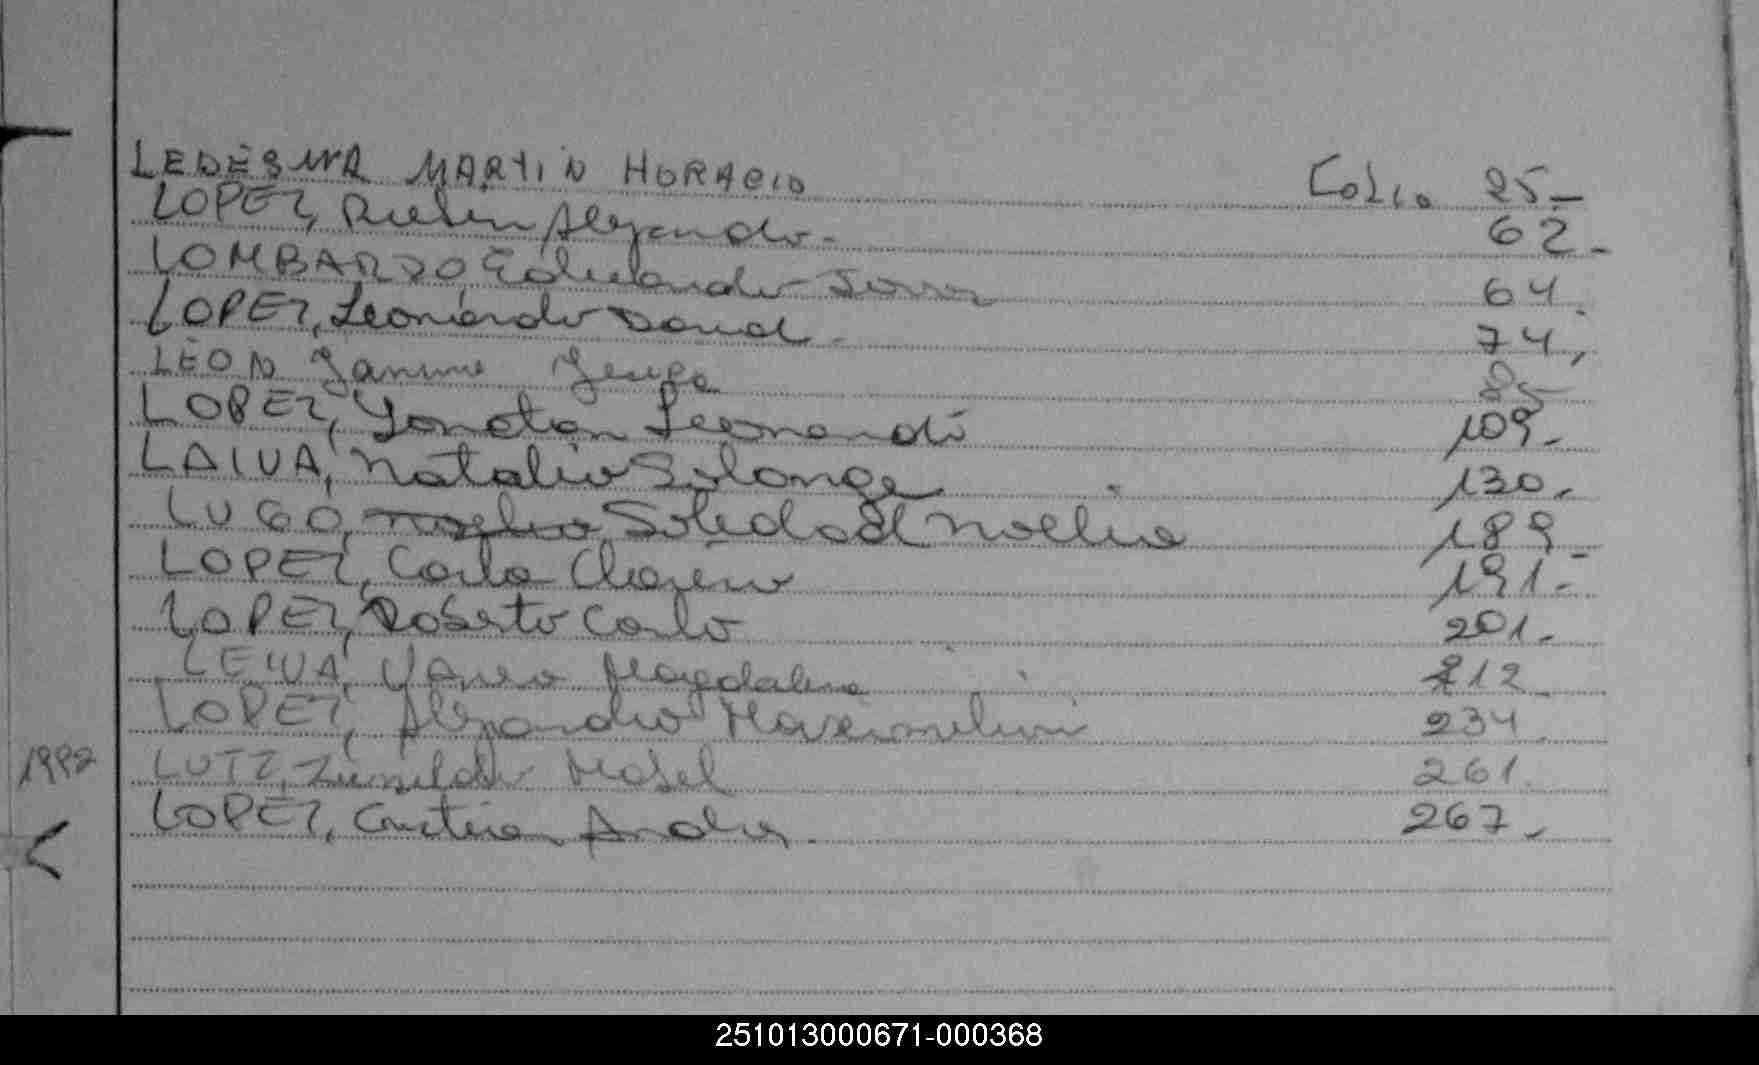 LEDESMA MARTIN HORACIO Folio 25-
LOPEZ, Ruben Alejandro. 62.-
LOMBARDO, Eduardo 64.
LOPEZ, Leonardo David. 74,
LEON 85
LOPEZ, Jonatan Leonardo 109.-
LAIUA, Natalia Solange 130.-
LUGO, Soledad Noelia 189.-
LOPEZ, Carla 191.-
LOPEZ, Roberto Carlo 201.-
LEIUA, Magdalena 212.
LOPEZ, Alejandro Maximiliano 234.
1992 LUTZ, Mabel 261.
LOPEZ, Cristian Andres. 267.-
251013000671-000368